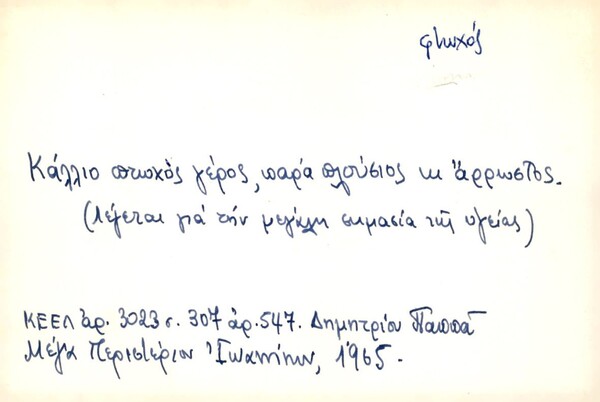 φτωχός
Κάλλιο πτωχὸς γέρος, παρά πλούσιος κι ἄρρωστος.
(λέγεται γιά τήν μεγάλη σημασία τῆς ὑγείας)
ΚΕΕΛ ἀρ. 3023 σ. 307 ἀρ. 547. Δημητρίου Παππᾶ
Μέγα Περιστέριον Ἰωαννίνων, 1965.